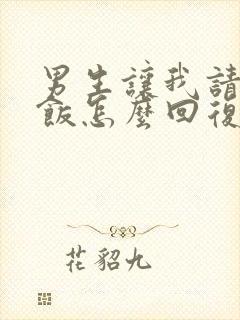 男生讓我請
飯怎麼回復
花貂九